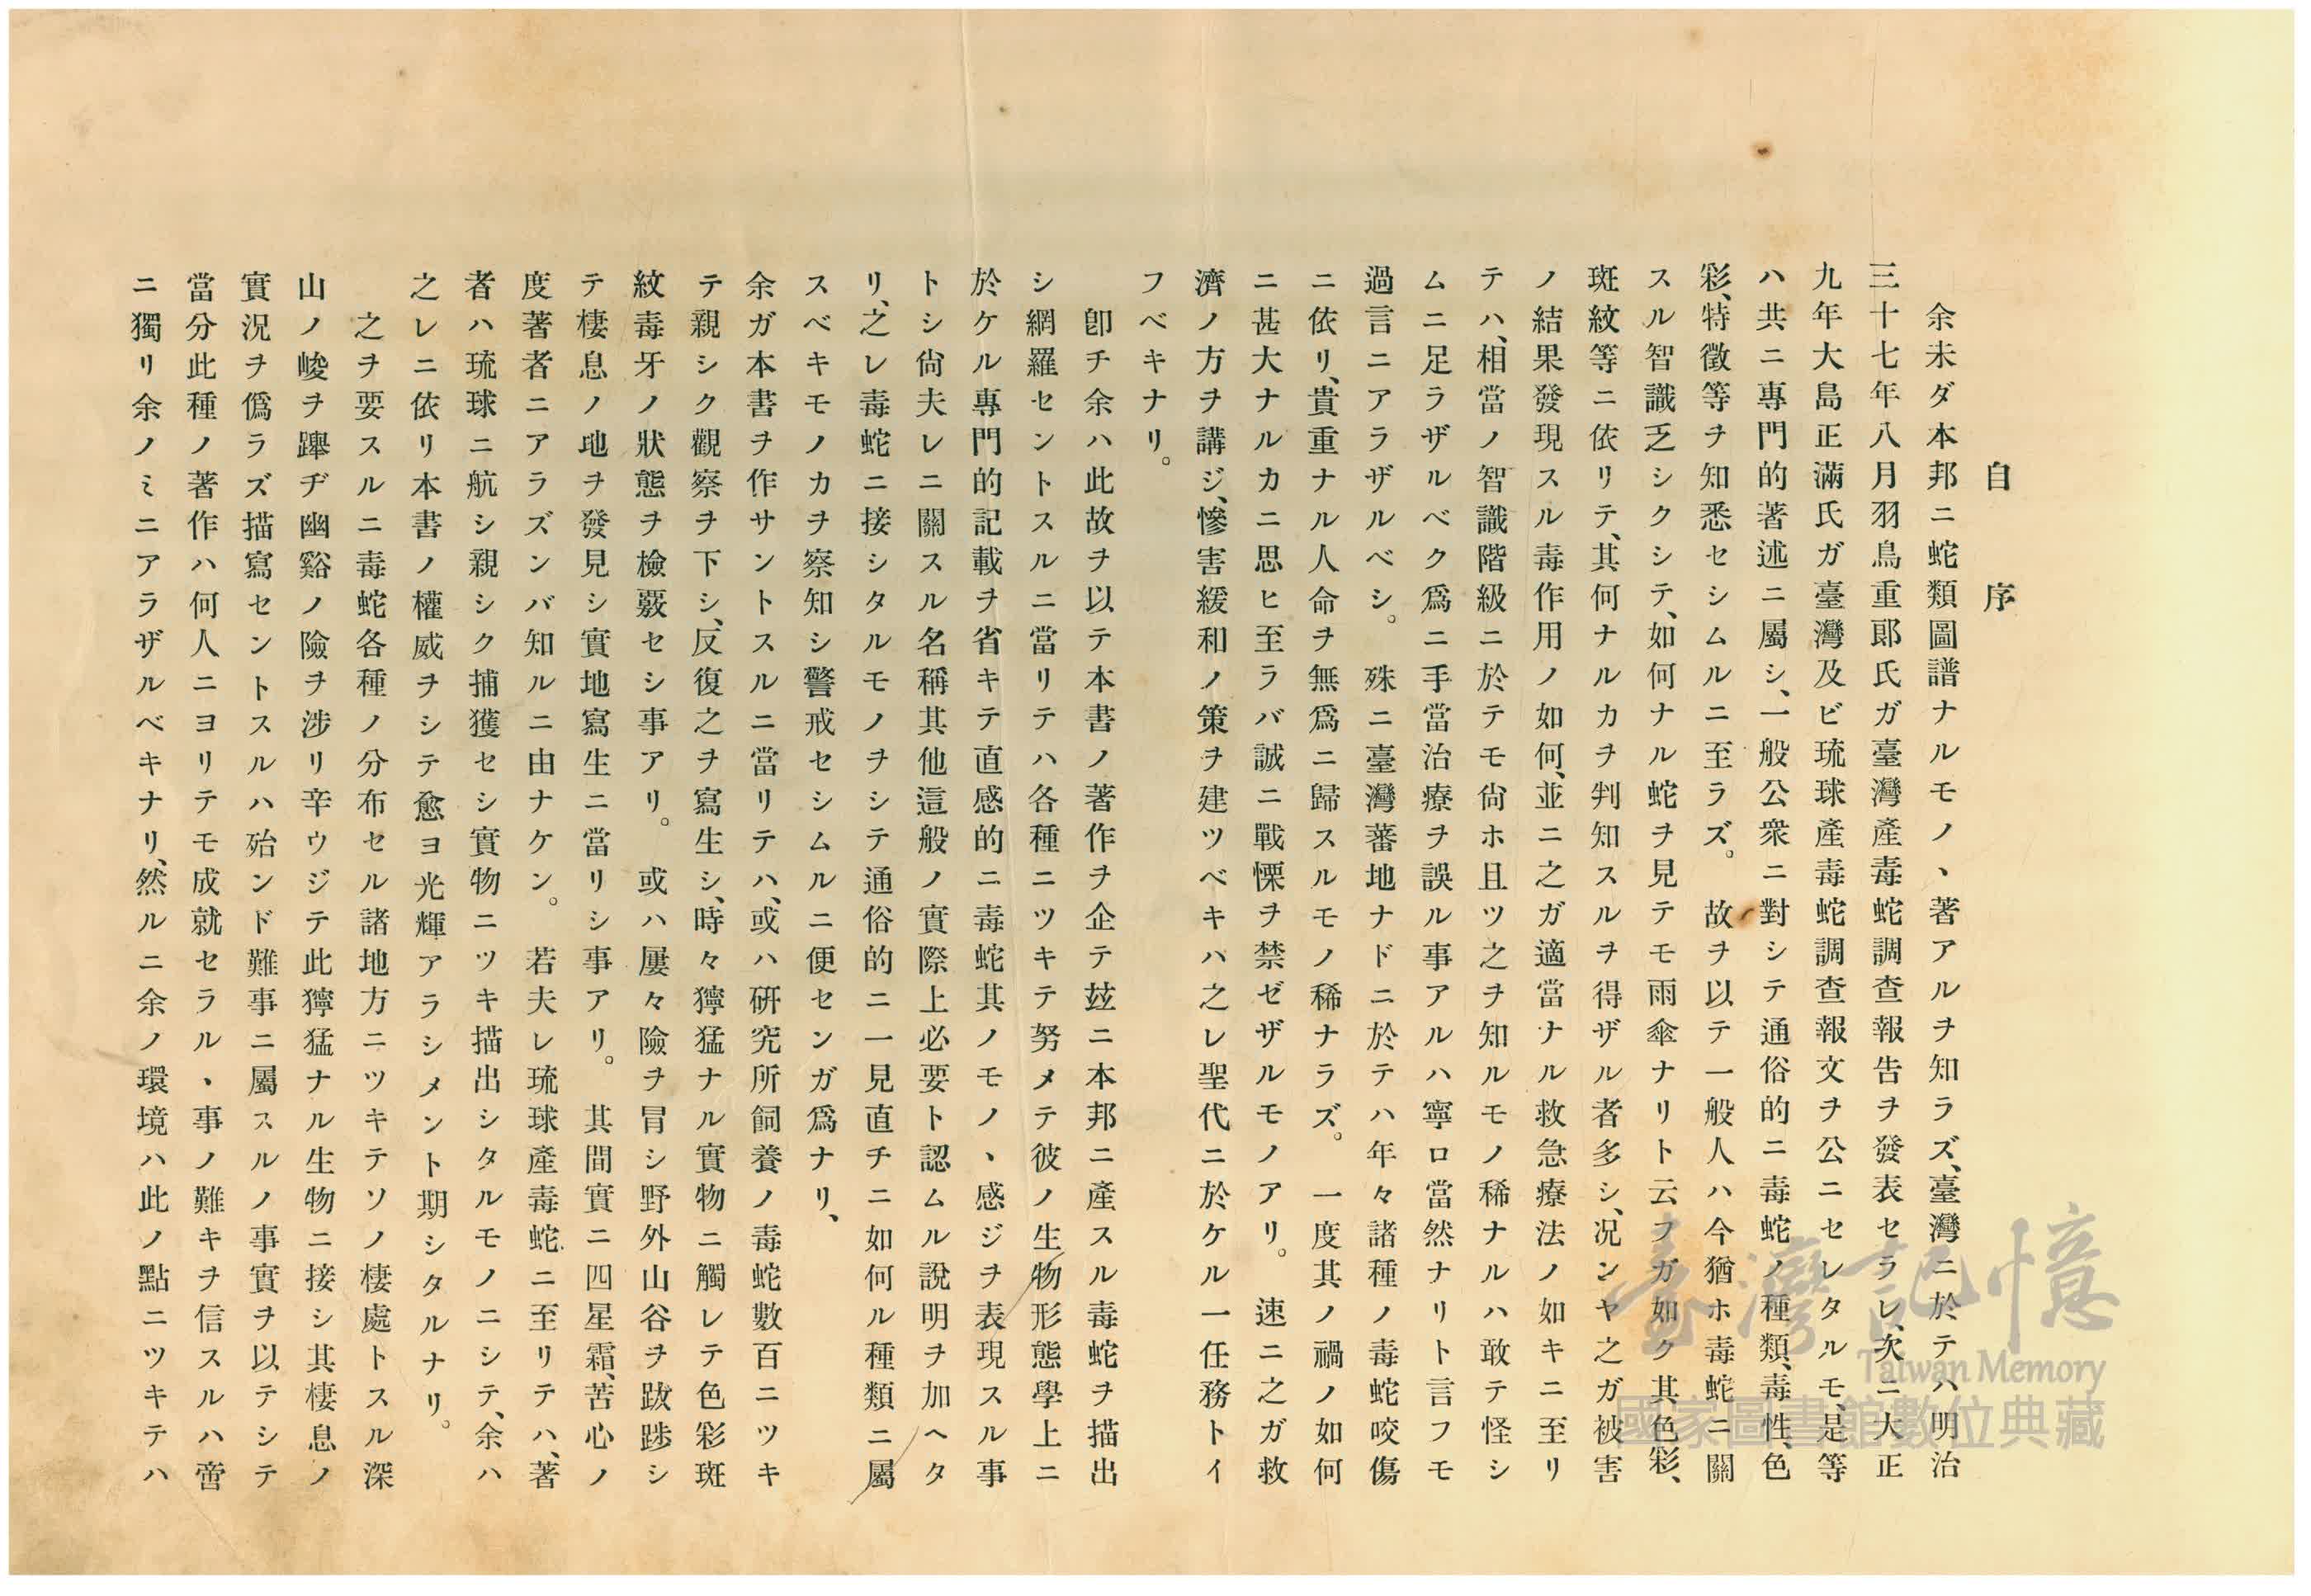 自序
余未ダ本邦ニ蛇類圖譜ナルモノヽ著アルヲ知ラズ、臺灣ニ於テハ明治
三十七年八月羽鳥重郞氏ガ臺灣產毒蛇調查報告ヲ發表セラレ、次ニ大正
九年大島正滿氏ガ臺灣及ビ琉球產毒蛇調查報文ヲ公ニセレタルモ、是等
ハ共ニ專門的著述ニ屬シ、一般公衆ニ對シテ通俗的ニ毒蛇ノ種類、毒性、色
彩、特徵等ヲ知悉セシムルニ至ラズ。故ヲ以テ一般人ハ今猶ホ毒蛇ニ關
スル智識乏シクシテ、如何ナル蛇ヲ見テモ雨傘ナリト云フガ如ク其色彩、
斑紋等ニ依リテ、其何ナルカヲ判知スルヲ得ザル者多シ、况ンヤ之ガ被害
ノ結果發現スル毒作用ノ如何、並ニ之ガ適當ナル救急療法ノ如キニ至リ
テハ、相當ノ智識階級ニ於テモ尙ホ且ツ之ヲ知ルモノ稀ナルハ敢テ怪シ
ムニ足ラザルベク爲ニ手當治療ヲ誤ル事アルハ寧ロ當然ナリト言フモ
過言ニアラザルベシ。殊ニ臺灣蕃地ナドニ於テハ年々諸種ノ毒蛇咬傷
ニ依リ、貴重ナル人命ヲ無爲ニ歸スルモノ稀ナラズ。一度其ノ禍ノ如何
ニ甚大ナルカニ思ヒ至ラバ誠ニ戰慄ヲ禁ゼザルモノアリ。速ニ之ガ救
濟ノ方ヲ講ジ、慘害緩和ノ策ヲ建ツベキハ之レ聖代ニ於ケル一任務トイ
フベキナリ。
卽チ余ハ此故ヲ以テ本書ノ著作ヲ企テ玆ニ本邦ニ產スル毒蛇ヲ描出
シ網羅セントスルニ當リテハ各種ニツキテ努メテ彼ノ生物形態學上ニ
於ケル專門的記載ヲ省キテ直感的ニ毒蛇其ノモノヽ感ジヲ表現スル事
トシ尙夫レニ關スル名稱其他這般ノ實際上必要ト認ムル說明ヲ加ヘタ
リ、之レ毒蛇ニ接シタルモノヲシテ通俗的ニ一見直チニ如何ル種類ニ屬
スベキモノカヲ察知シ警戒セシムルニ便センガ爲ナリ、
余ガ本書ヲ作サントスルニ當リテハ、或ハ硏究所飼養ノ毒蛇數百ニツキ
テ親シク觀察ヲ下シ、反復之ヲ寫生シ、時々獰猛ナル實物ニ觸レテ色彩斑
紋毒牙ノ狀態ヲ檢覈セシ事アリ。或ハ屢々險ヲ冒シ野外山谷ヲ跋踄シ
テ棲息ノ地ヲ發見シ實地寫生ニ當リシ事アリ。其間實ニ四星霜、苦心ノ
度著者ニアラズンバ知ルニ由ナケン。若夫レ琉球產毒蛇ニ至リテハ、著
者ハ琉球ニ航シ親シク捕獲セシ實物ニツキ描出シタルモノニシテ、余ハ
之レニ依リ本書ノ權威ヲシテ愈ヨ光輝アラシメント期シタルナリ。
之ヲ要スルニ毒蛇各種ノ分布セル諸地方ニツキテソノ棲處トスル深
山ノ峻ヲ躋ヂ幽谿ノ險ヲ涉リ辛ウジテ此獰猛ナル生物ニ接シ其棲息ノ
實況ヲ僞ラズ描寫セントスルハ殆ンド難事ニ屬スルノ事實ヲ以テシテ
當分此種ノ著作ハ何人ニヨリテモ成就セラルヽ事ノ難キヲ信スルハ啻
ニ獨リ余ノミニアラザルベキナリ、然ルニ余ノ環境ハ此ノ點ニツキテハ
臺灣記憶
Taiwan Memory
國家圖書館數位典藏